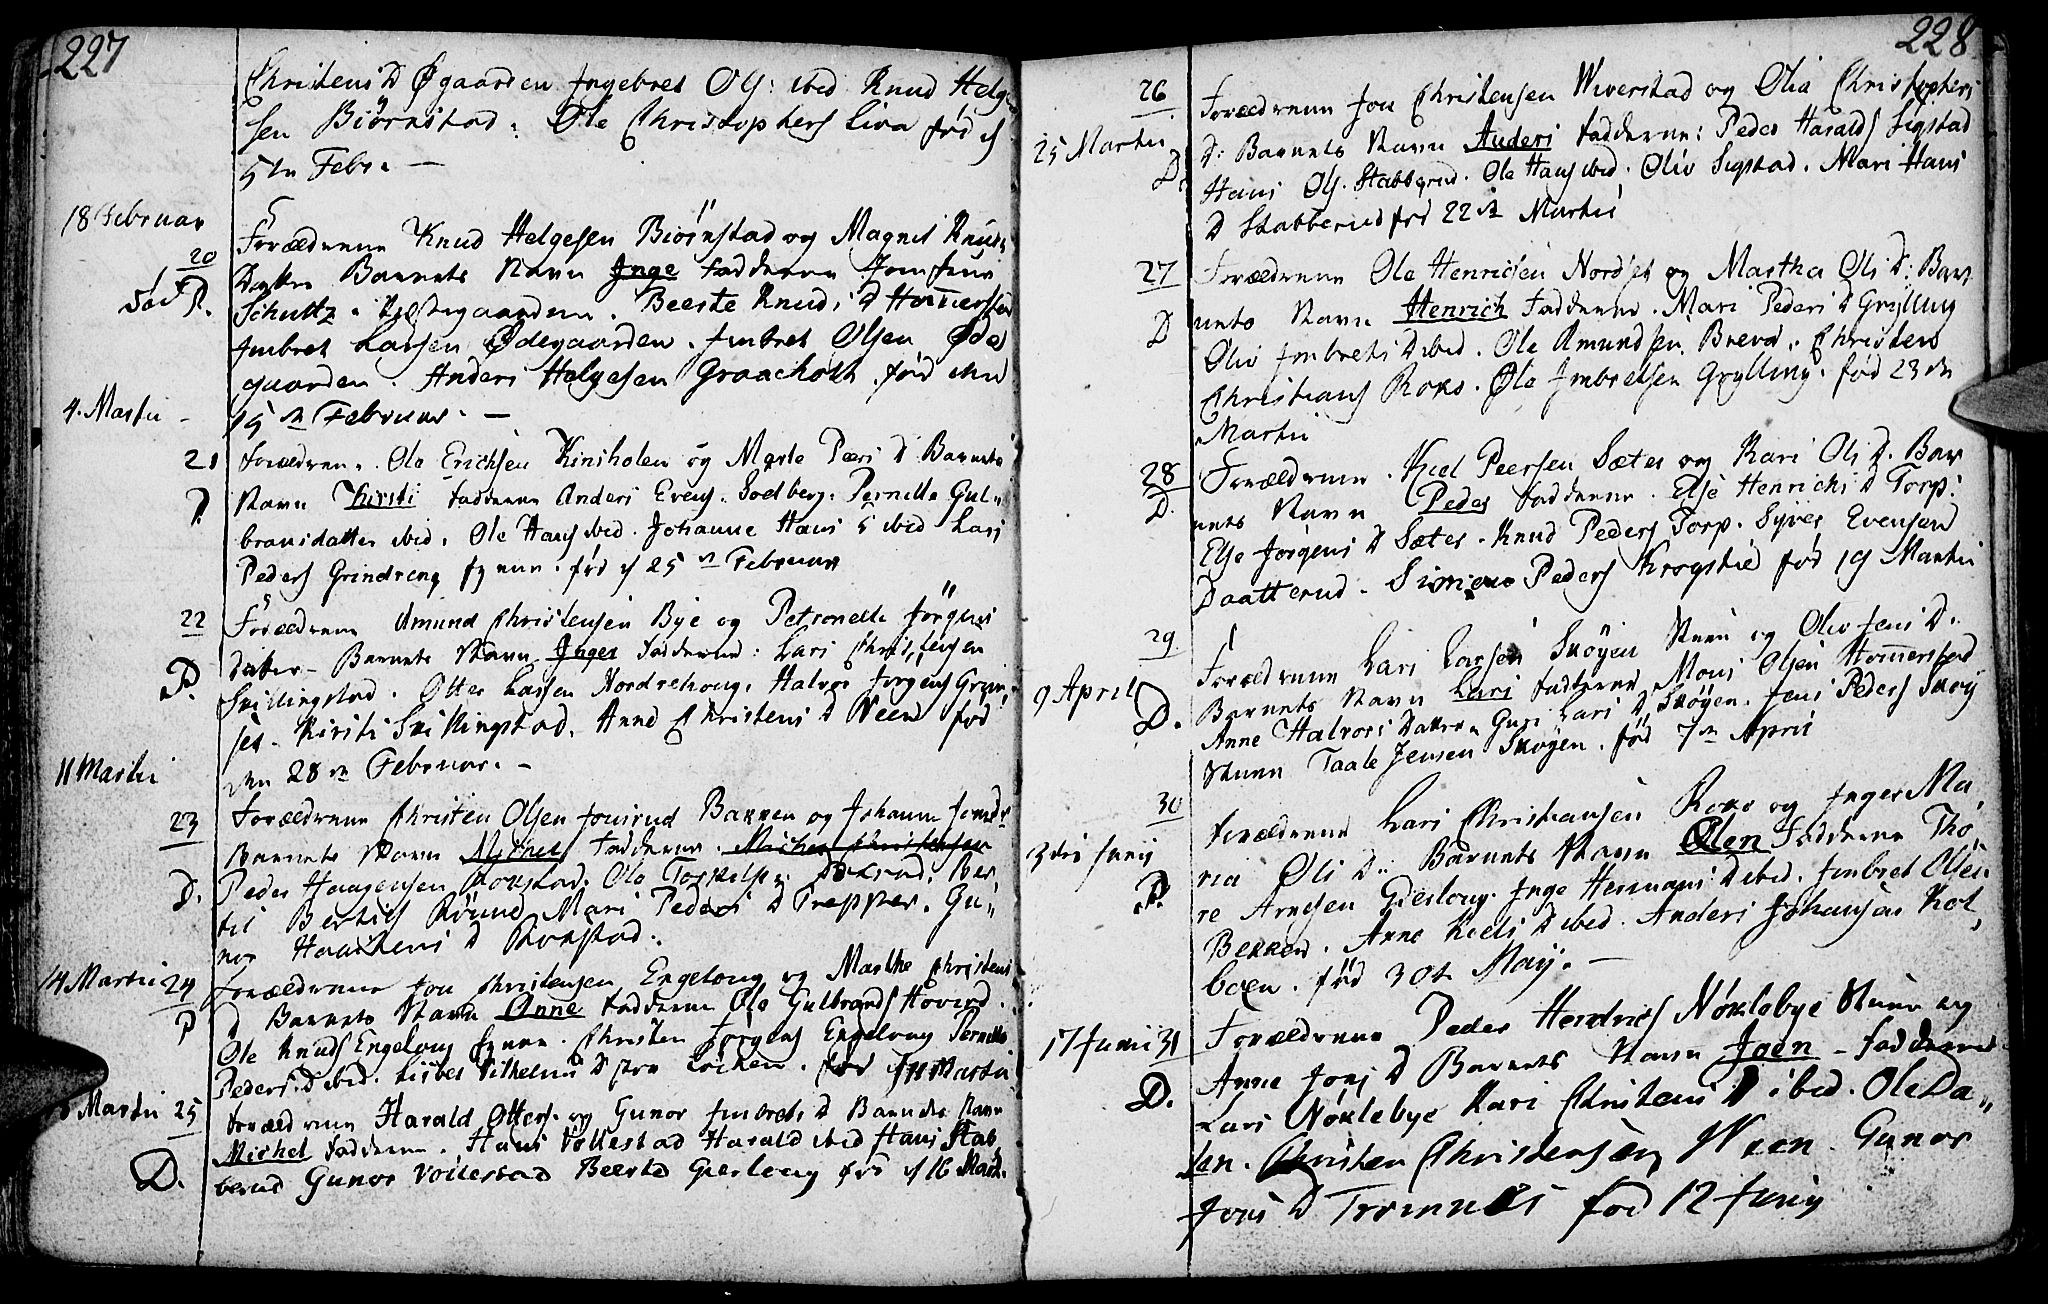 227
Christens D Øgaarden Ingebret Ols: ibid Knud Helge
sen Biørnstad. Ole Christophers Lira fød d
5te Febr. —
18 Februar
20
Forældrene Knud Helgesen Biørnstad og Magnil Knuds
Datter Barnets Navn Inge Fadderne Jomfrue
Schultz i Præstegaarden. Beerte Knuds D Homerstad
Imbret Larsen Ødegaarden. Imbret Olsen Øde
gaarden. Anders Helgesen Graacholt. fød den
15de Februar. —
4. Martii —
21
Forældrene. Ole Erichsen Kinsholen og Marte Peers D Barnets
D
Navn Kirsti Fadderne Anders Evens. Soelberg. Pernille Gul-
bransdatter ibid. Ole Hans ibid. Johanne Hans D ibid Lars
Peders Grindreng fød d 25de Februar
22
Forældrene Amund Christensen Bye og Petronelle Jörgens
D.
datter - Barnets Navn Inger Fadderne: Lars Christensen
Skillingstad. Otter Larsen Nordrehoug. Halvor Jørgens Grim
set. Kirsti Skillingstad. Anne Christens D Neen fød
den 28de Februar. —
11 Martii
23
Forældrene Christen Olsen Jonsrud Bakken og Johanne Jonsdr
Barnets Navn Michel Fadderne. Michel Christensen
D.
Peder Haagensen Rokstad. Ole Torkels. Ber
til Bertils Röune Mari Peders D Trepper. Gu-
nor Haachens D Rokstad.
14 Martii 24
Forældrene Jon Christensen Engeloug og Marthe Christens
D
D Barnets Navn Anne Fadderne Ole Gulbrands Hoverd.
Ole Knuds Engeloug. Christen Jörgens Engeloug Pernille
Peders D ibid. Lisbet Vilhelms D fra Löchen. fød Martii
Martii 25
Forældrene Harald Otters. og Gunor Imbrets D Barnets Navn
D.
Michel Fadderne. Hans Vollestad Harald ibid Hans Stab
berud Gunor Vollestad Beerte Gierloug fød d 16 Mart.
228
26
Forældrene Jon Christensen Wiverstad og Olia Christophers
25 Martii
D: Barnets Navn Anders Fadderne: Peder Haralds Sigstad
D.
Hans Ols. Stabberud. Ole Hans ibid. Oliv Sigstad. Mari Hans
D Stabberud fød 22de Martii
27
Forældrene Ole Henrichsen Nordset og Martha Ols D: Bar
D
nets Navn Henrich Fadderne. Mari Peders D Grylling
Oliv Imbrets D ibid. Ole Amundsen Brevd. Christen
Christians Roko. Ole Imbretsen Grylling. fød 23de
Martii
28
Forældrene. Kiel Peersen Sæter og Kari Ols D. Bar
D.
nets Navn Peder Fadderne. Else Henrichs D Torp.
Else Jörgens D Sæter. Knud Peders Torp. Syver Evensen
Daatterud. Simen Peders Krogstie fød 19 Martii
29
Forældrene Lars Larsen Skøyen og Oliv Jens D.
9 April
Barnets Navn Lars Fadderne Mons Olsen Homerstad
D.
Anne Halvors Datter. Guri Lars D Skøyen. Jens Peders Skøy
Taale Jensen Skøyen. fød 7de April
30
Forældrene Lars Christiansen Roko og Inger Ma
3die Junij
ria Ols D: Barnets Navn Olen Fadderne Tho
D.
re Arnesen Gierloug. Inge Hermans D ibid. Imbret Olsen
Bekken. Anne Kiels D ibid. Anders Johansen Kol
boen. fød 30t Maij. —
17 Junii 31
Forældrene Peder Hendrics Nøklebye og
Anne Jons D Barnets Navn Joen — Fadderne
D.
Lars Nøklebye Kari Christens D ibid. Ole Da-
len. Christen Christensen Neen. Gunor
Jons D Tromnes fød 12 Junij